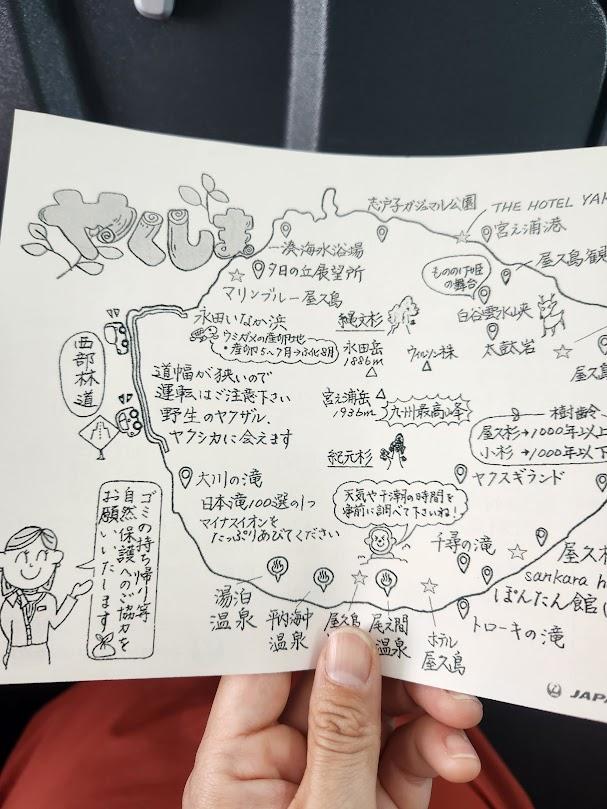 やくしま
志戸子ガジュマル公園
THE HOTEL YAK
宮之浦港
浜海水浴場
夕日の丘展望所
マリンブルー屋久島
屋久島観
もののけ姫
の舞台
白谷雲水峡
太鼓岩
永田いなか浜
ウミガメの産卵地
・産卵5〜7月→ふ化8月
縄文杉
永田岳
1886m
ウィルソン株
屋久島
西部林道
道幅が狭いので
運転はご注意下さい
野生のヤクザル、
ヤクシカに会えます
宮之浦岳
1936m
九州最高峰
樹齢
屋久杉→1000年以上
小杉→1000年以下
紀元杉
ヤクスギランド
大川の滝
日本滝100選の1つ
マイナスイオンを
たっぷりあびてください
天気や干潮の時間を
事前に調べて下さいね!
千尋の滝
屋久
sankara h
ぽんたん館
トローキの滝
湯泊
温泉
平内海中
温泉
屋久島
尾之間
温泉
ホテル
屋久島
ゴミの持ち帰り等
自然保護へのご協力を
お願いいたします
JAPA